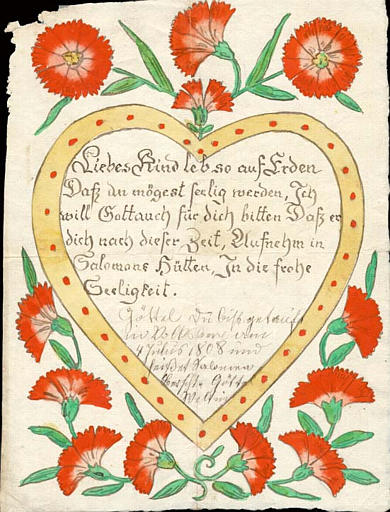 Liebes Kind leb so auf Erden
Daß du mögest seelig werden, Ich
will Gott auch für dich bitten Daß er
dich nach dieser Zeit, Aufnehm in
Salomons Hütten, In die frohe
Seeligkeit.
Göttel Du bist getauft
den
1808 und
heißet Salomon
Göttel